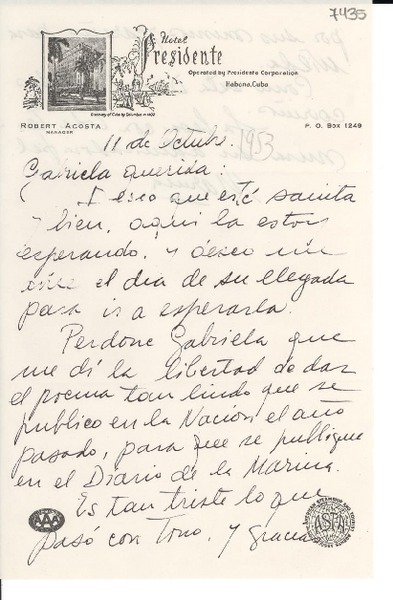 7435
Hotel
Presidente
Operated by Presidente Corporation
Habana, Cuba
ROBERT ACOSTA
MANAGER
P. O. Box 1249
11 de Octubre. 1953
Gabriela querida:
Deseo que esté sanita
y bien, aqui la estoy
esperando, y deseo me
avise el dia de su llegada
para ir a esperarla.
Perdone Gabriela que
me dí la libertad de dar
el poema tan lindo que se
publico en la Nación el año
pasado, para que se publique
en el Diario de la Marina.
Es tan triste lo que
pasó con Tono. Y gracias
AAA
ASTA